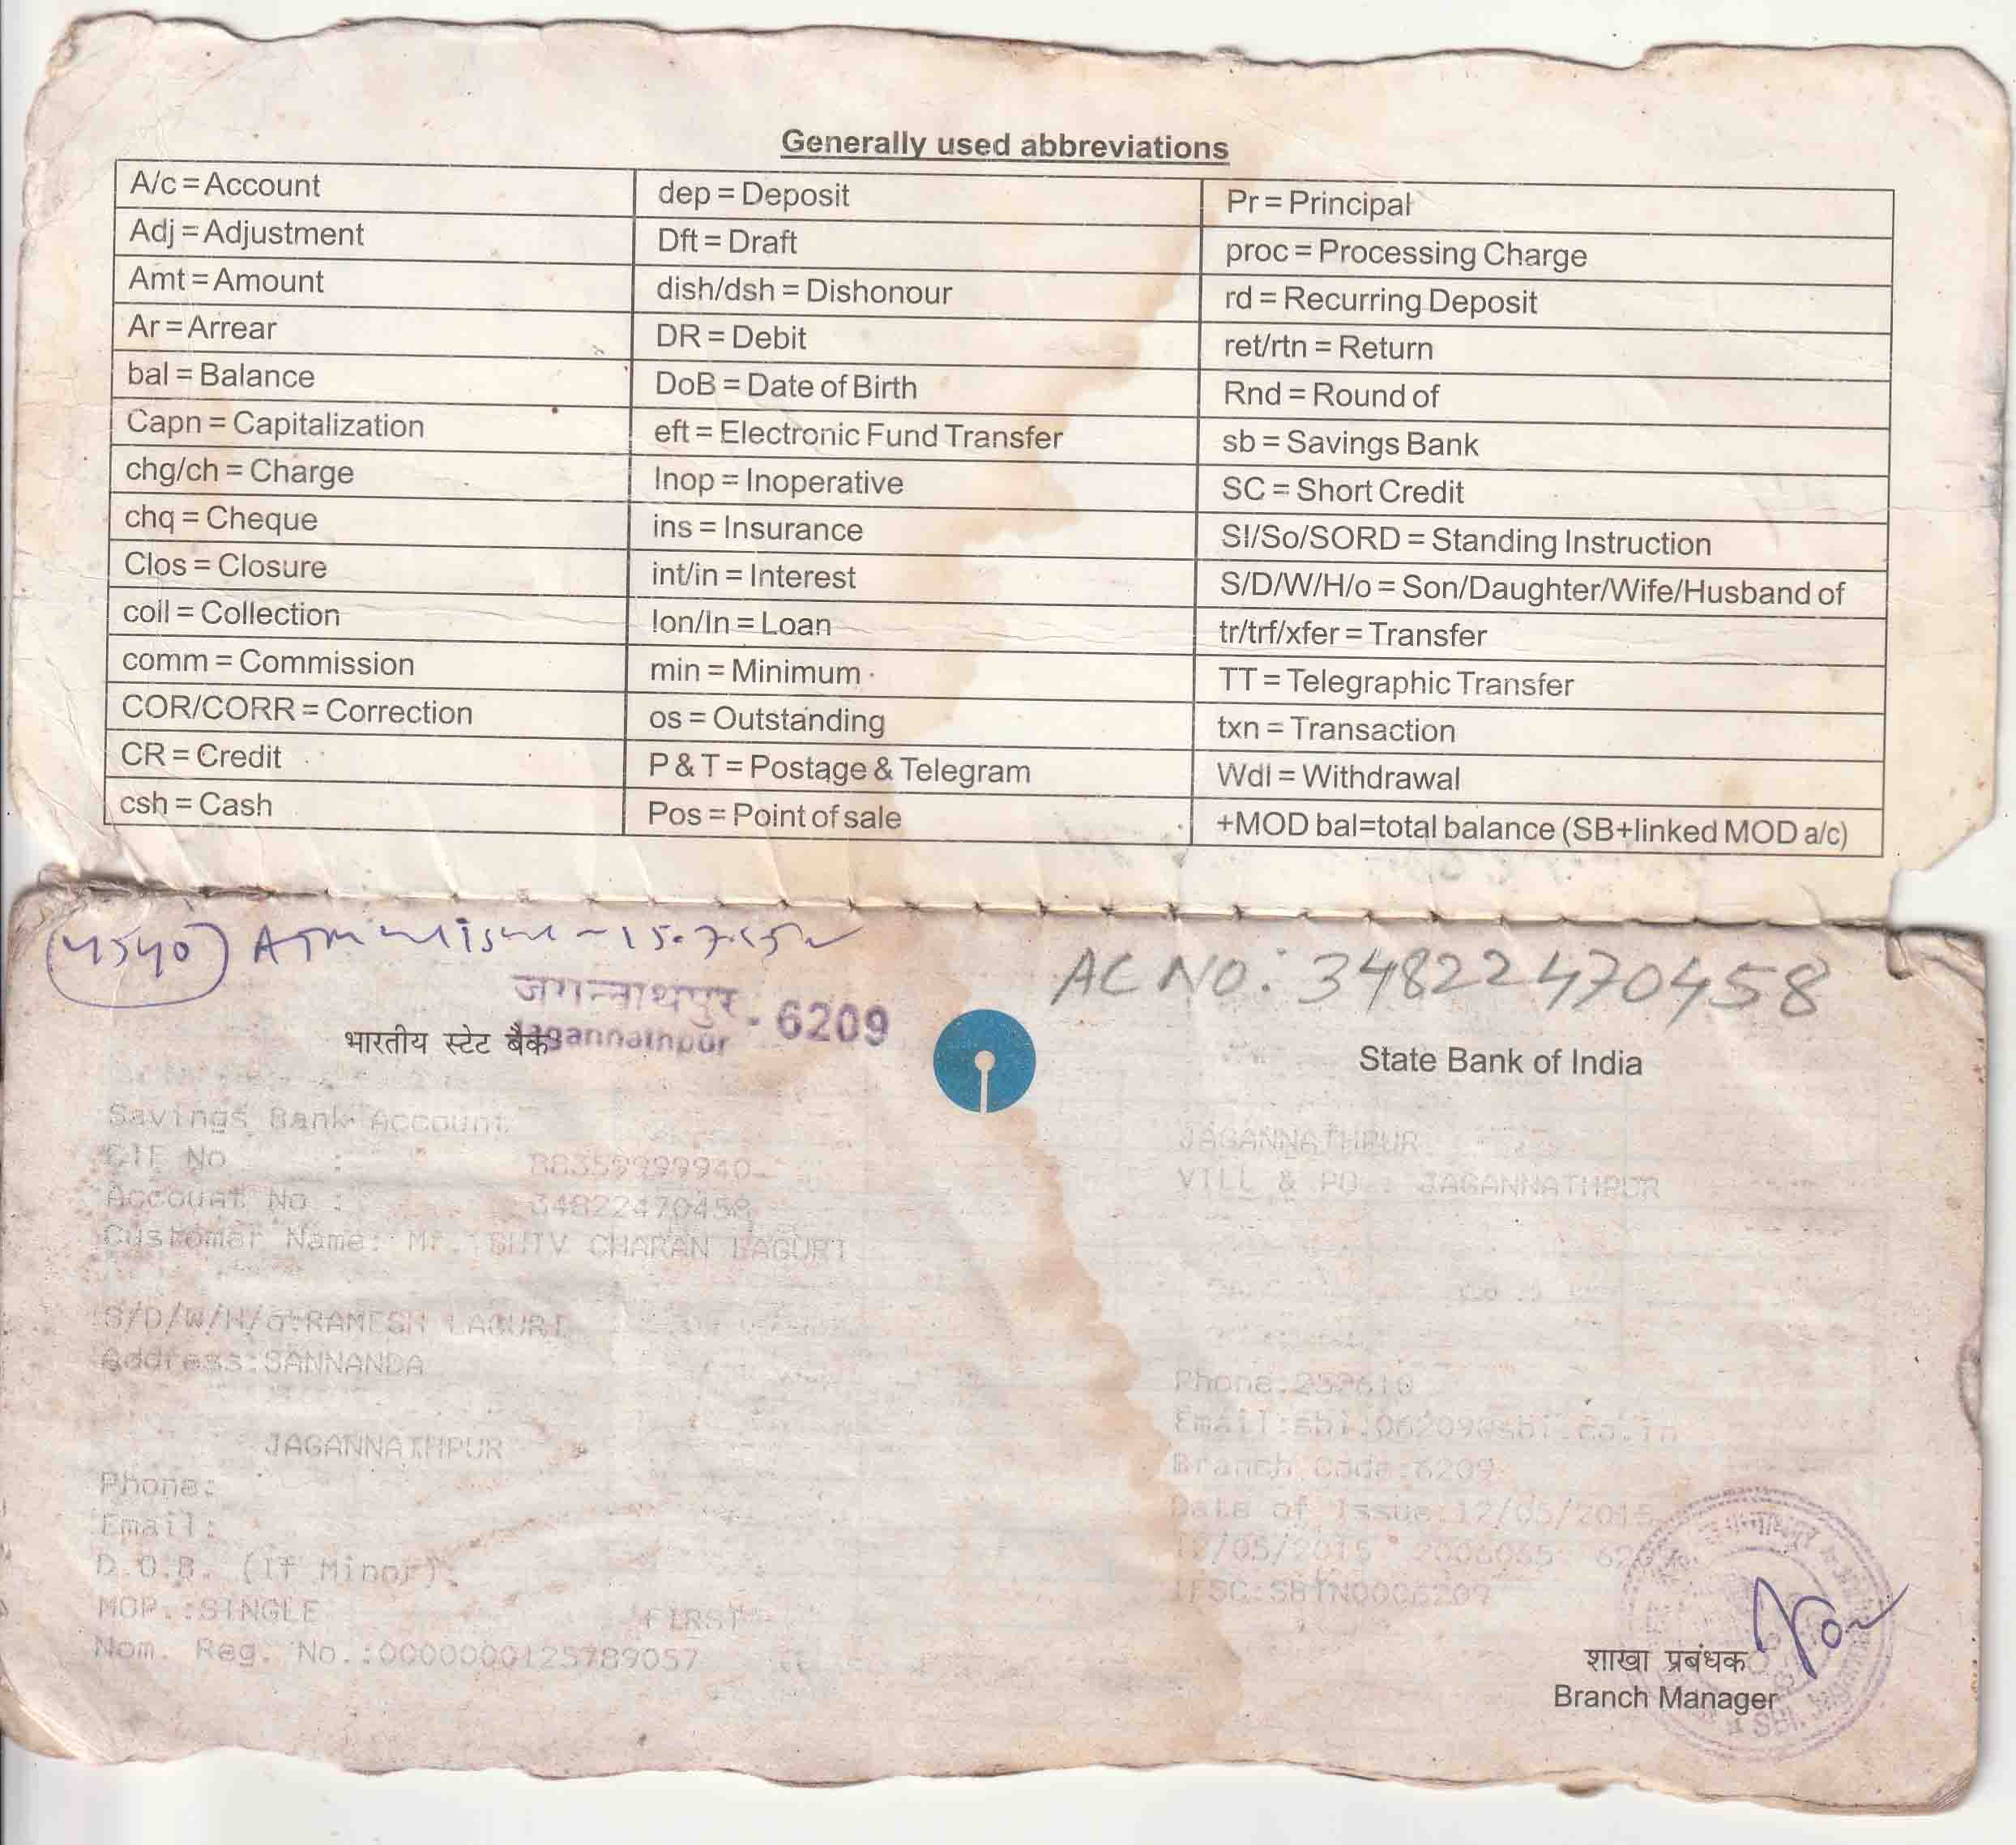 Generally used abbreviations
A/c = Account
dep = Deposit
Pr = Principal
Adj = Adjustment
Dft = Draft
proc = Processing Charge
Amt = Amount
dish/dsh = Dishonour
rd = Recurring Deposit
Ar = Arrear
DR = Debit
ret/rtn = Return
bal = Balance
DoB = Date of Birth
Rnd = Round of
Capn = Capitalization
eft = Electronic Fund Transfer
sb = Savings Bank
chg/ch = Charge
Inop = Inoperative
SC = Short Credit
chq = Cheque
ins = Insurance
SI/So/SORD = Standing Instruction
Clos = Closure
int/in = Interest
S/D/W/H/o = Son/Daughter/Wife/Husband of
coll = Collection
lon/ln = Loan
tr/trf/xfer = Transfer
comm = Commission
min = Minimum
TT = Telegraphic Transfer
COR/CORR = Correction
os = Outstanding
txn = Transaction
CR = Credit
P & T = Postage & Telegram
Wdl = Withdrawal
csh = Cash
Pos = Point of sale
+MOD bal=total balance (SB+linked MOD a/c)
4540 ATM
AC NO: 34822470458
जगन्नाथपुर - 6209
Jagannathpur
भारतीय स्टेट बैंक
State Bank of India
Savings Bank Account
CIF No :
Account No : 34822470458
Customer Name: Mr. SHIV CHARAN LAGURI
S/D/W/H/o:RAMESH LAGURI
Address:SANNANDA
JAGANNATHPUR
Phone:
Email:
D.O.B. (If Minor):
MOP.:SINGLE FIRST
Nom. Reg. No.:0000000125789057
JAGANNATHPUR
VILL & PO : JAGANNATHPUR
Phone:
Email:sbi.06209@sbi.co.in
Branch Code:6209
Date of Issue:12/05/2015
12/05/2015
IFSC:SBIN0006209
शाखा प्रबंधक
Branch Manager